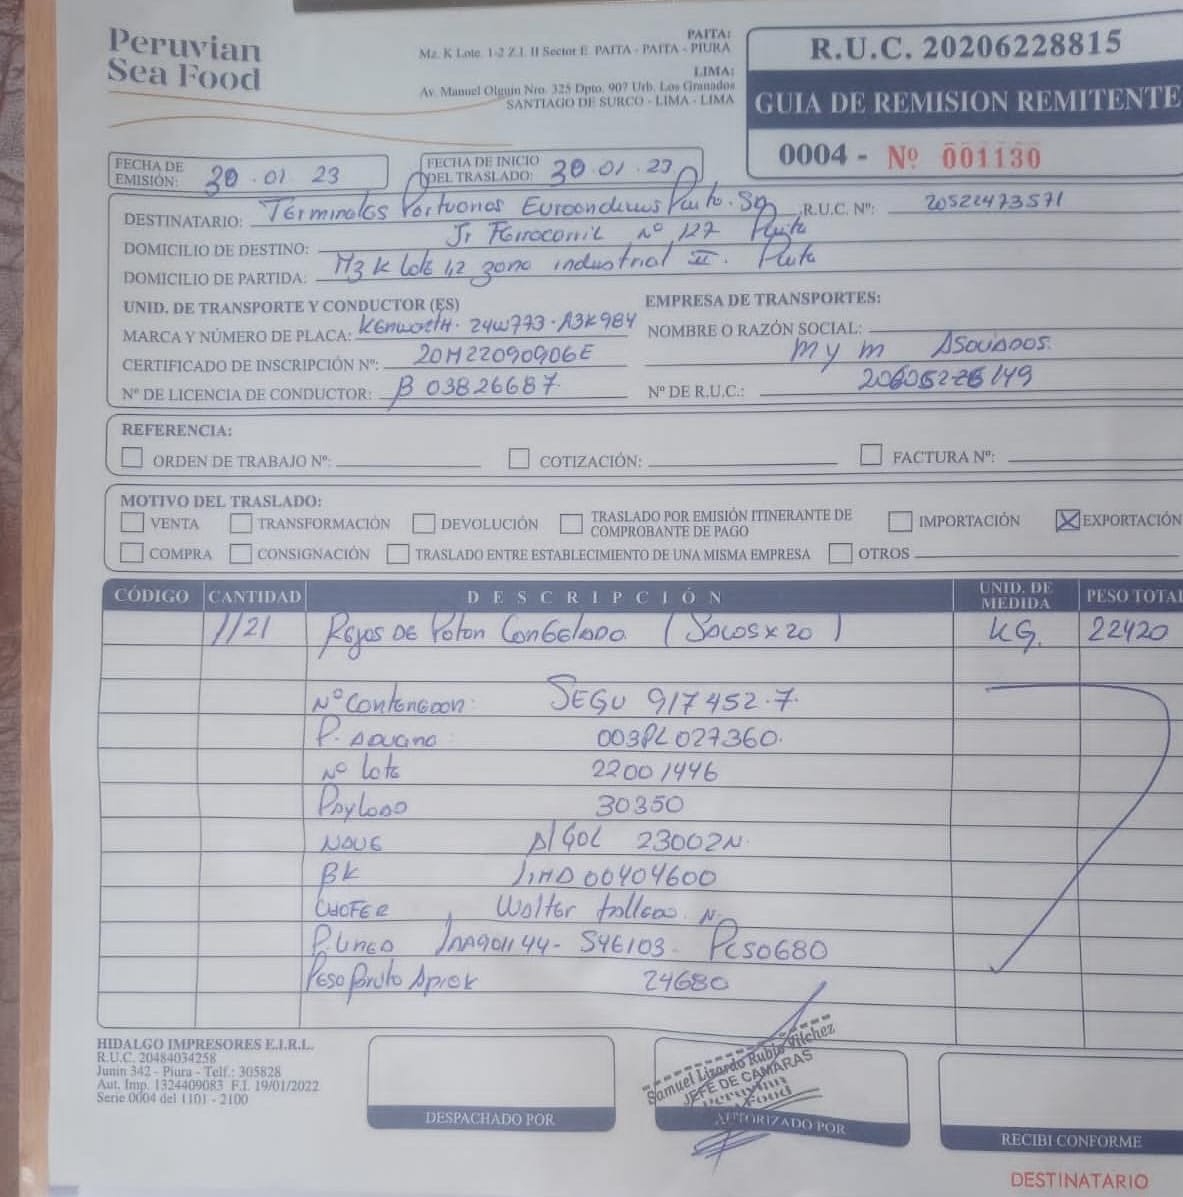 Peruvian
Sea Food
PAITA:
Mz. K Lote. 1-2 Z.I. II Sector E PAITA - PAITA - PIURA
LIMA:
Av. Manuel Olguin Nro. 325 Dpto. 907 Urb. Los Granados
SANTIAGO DE SURCO - LIMA - LIMA
R.U.C. 20206228815
GUIA DE REMISION REMITENTE
0004 - Nº 001130
FECHA DE EMISIÓN: 30 . 01 . 23
FECHA DE INICIO DEL TRASLADO: 30 . 01 . 23
DESTINATARIO: Terminales Portuarios Euroandinos Paita. SA R.U.C. Nº: 20522473571
DOMICILIO DE DESTINO: Jr Ferrocarril nº 127 Paita
DOMICILIO DE PARTIDA: Mz K lote 1,2 zona industrial II. Paita
UNID. DE TRANSPORTE Y CONDUCTOR (ES)
EMPRESA DE TRANSPORTES:
MARCA Y NÚMERO DE PLACA: Kenworth.
NOMBRE O RAZÓN SOCIAL: M y M Asociados.
CERTIFICADO DE INSCRIPCIÓN Nº: 20M22090906E
Nº DE LICENCIA DE CONDUCTOR: B 03826687
Nº DE R.U.C.:
REFERENCIA:
ORDEN DE TRABAJO Nº: COTIZACIÓN: FACTURA Nº:
MOTIVO DEL TRASLADO:
VENTA TRANSFORMACIÓN DEVOLUCIÓN TRASLADO POR EMISIÓN ITINERANTE DE COMPROBANTE DE PAGO IMPORTACIÓN EXPORTACIÓN
COMPRA CONSIGNACIÓN TRASLADO ENTRE ESTABLECIMIENTO DE UNA MISMA EMPRESA OTROS
CÓDIGO CANTIDAD DESCRIPCIÓN UNID. DE MEDIDA PESO TOTAL
1121 Rejos de Poton Congelado (Sacos x 20) KG. 22420
Nº Contenedor: SEGU 917452.7
P. Aduana: 003PL027360.
Nº Lote 22001446
Payload 30350
Nave Algol 23002N.
BK LMD00404600
CHOFER Walter
P. Linea 546103- PCS0680
Peso Bruto Aprox 24680
HIDALGO IMPRESORES E.I.R.L.
R.U.C. 20484034258
Junin 342 - Piura - Telf.: 305828
Aut. Imp. 1324409083 F.I. 19/01/2022
Serie 0004 del 1101 - 2100
DESPACHADO POR
Samuel Lizardo Rubio Vilchez
JEFE DE CAMARAS
Peruvian
Food
AUTORIZADO POR
RECIBI CONFORME
DESTINATARIO